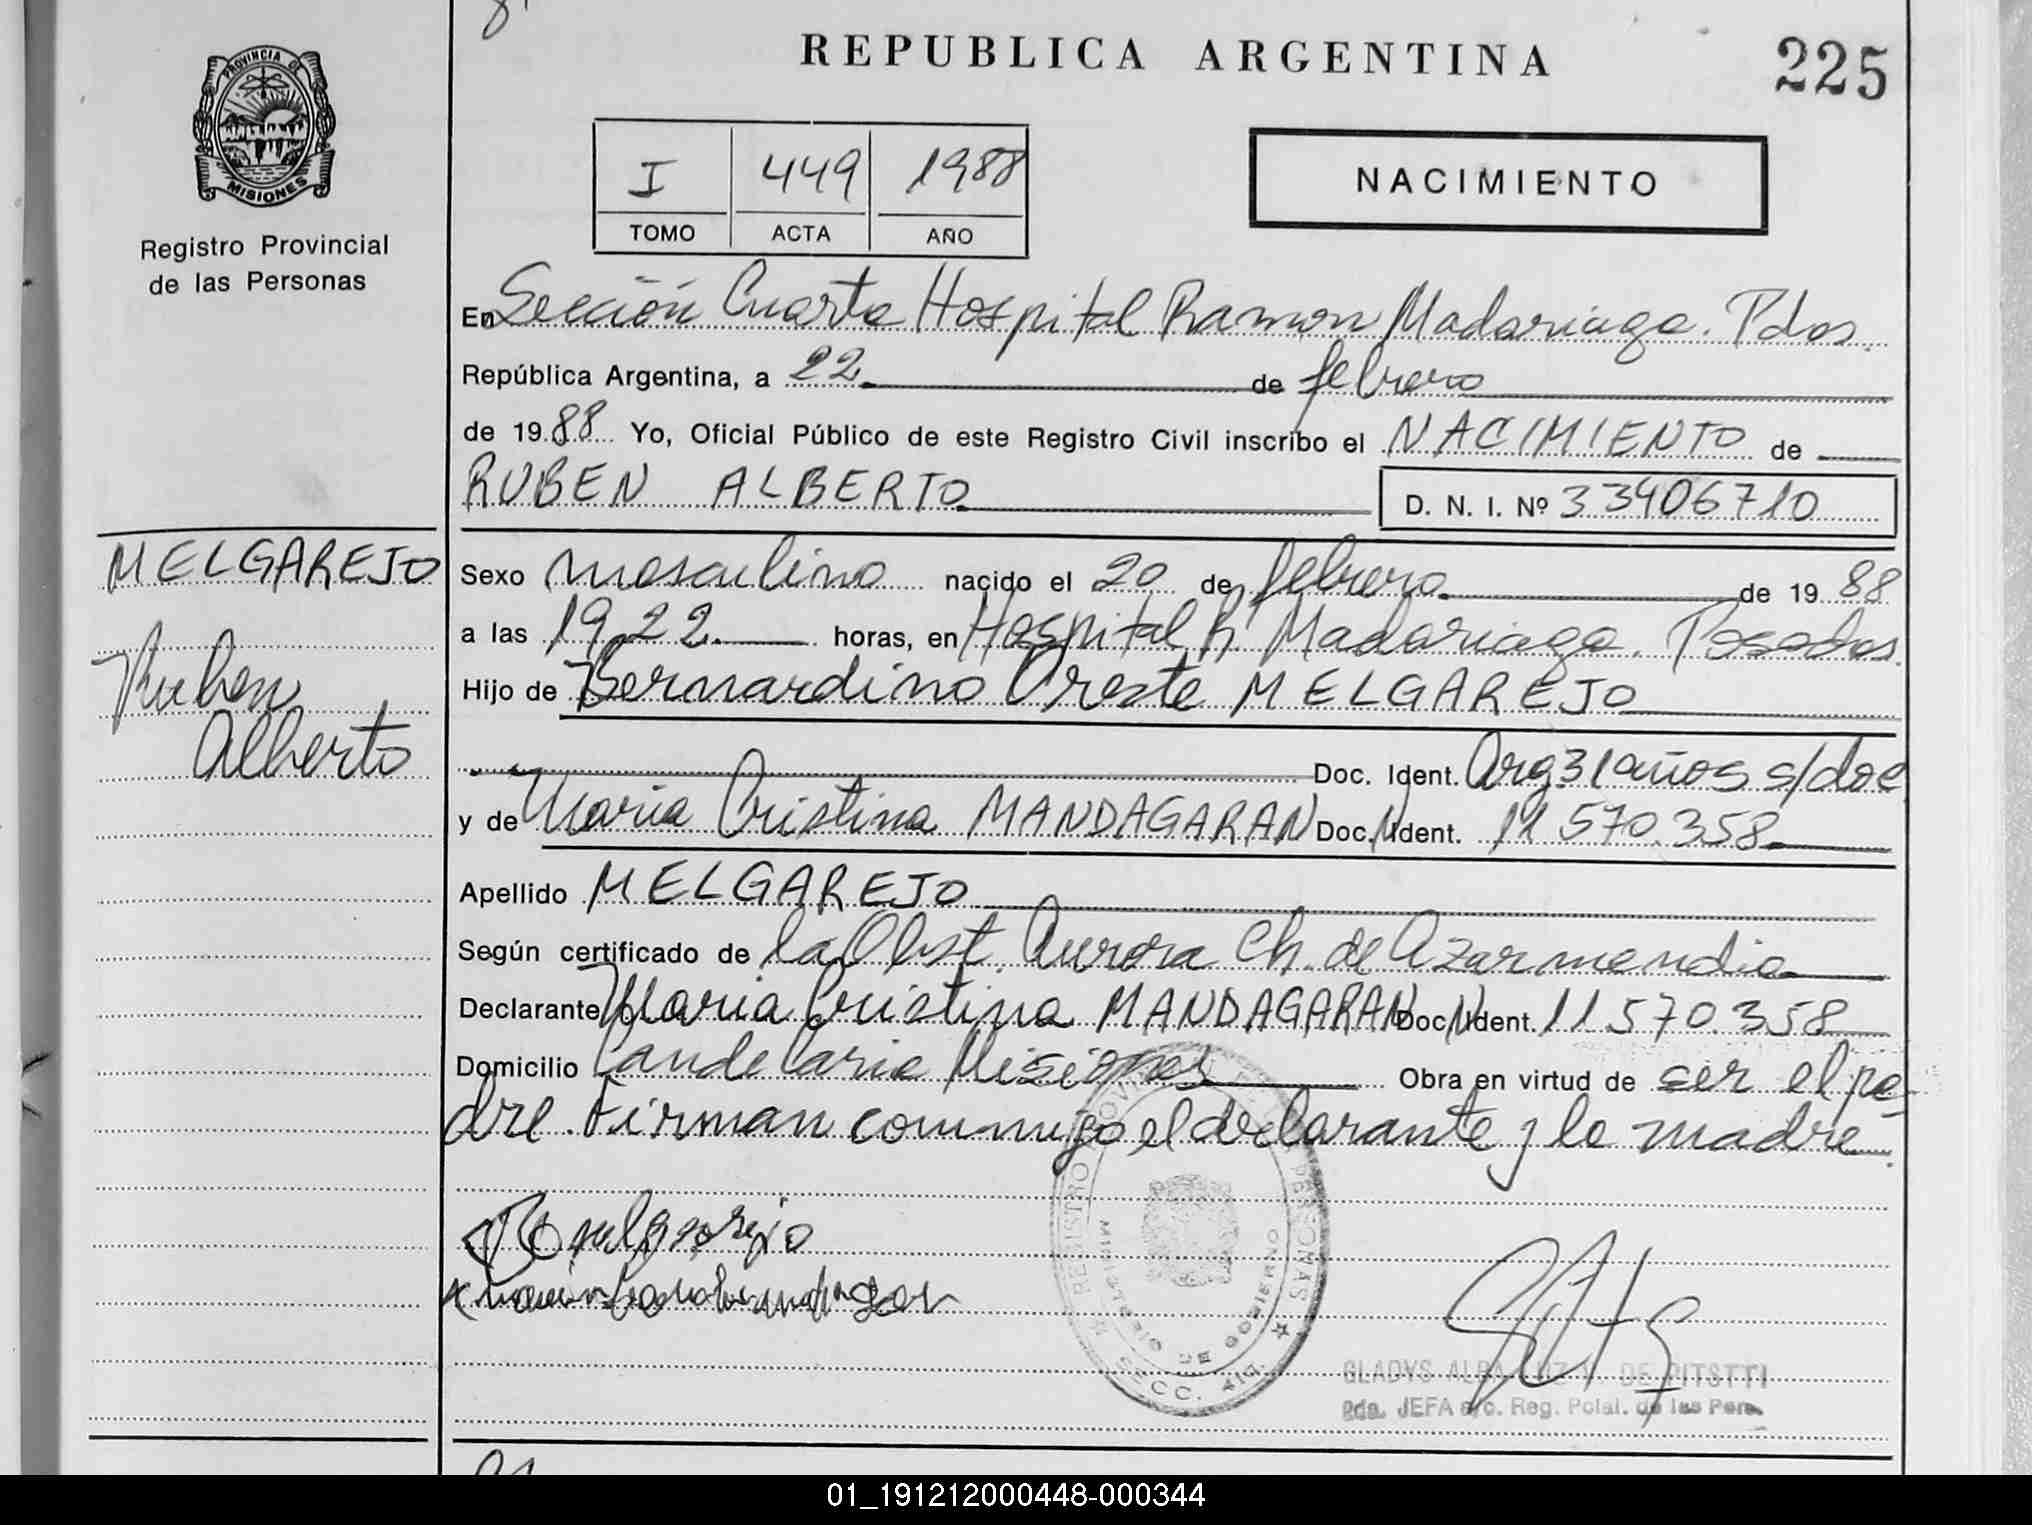 REPUBLICA ARGENTINA
225
PROVINCIA DE
MISIONES
Registro Provincial
de las Personas
I 449 1988
TOMO ACTA AÑO
NACIMIENTO
En Sección Cuarta Hospital Ramon Madariaga. Pdas.
República Argentina, a 22 de febrero
de 1988 Yo, Oficial Público de este Registro Civil inscribo el NACIMIENTO de
RUBEN ALBERTO
D. N. I. Nº 33406710
MELGAREJO
Ruben
Alberto
Sexo masculino nacido el 20 de febrero de 1988
a las 19,22 horas, en Hospital R. Madariaga. Posadas.
Hijo de Bernardino Oreste MELGAREJO
Doc. Ident. Arg 31 años s/doc
y de Maria Cristina MANDAGARAN Doc. Ident. 11.570.358
Apellido MELGAREJO
Según certificado de la Obst. Aurora Ch. de Azarmendia
Declarante Maria Cristina MANDAGARAN Doc. Ident. 11.570.358
Domicilio Candelaria Misiones Obra en virtud de ser el pa-
dre. Firman conmigo el declarante y la madre.
REGISTRO PERSONAS
GLADYS ALBA DE PITSTTI
JEFA a/c. Reg. de las Pers.
01_191212000448-000344